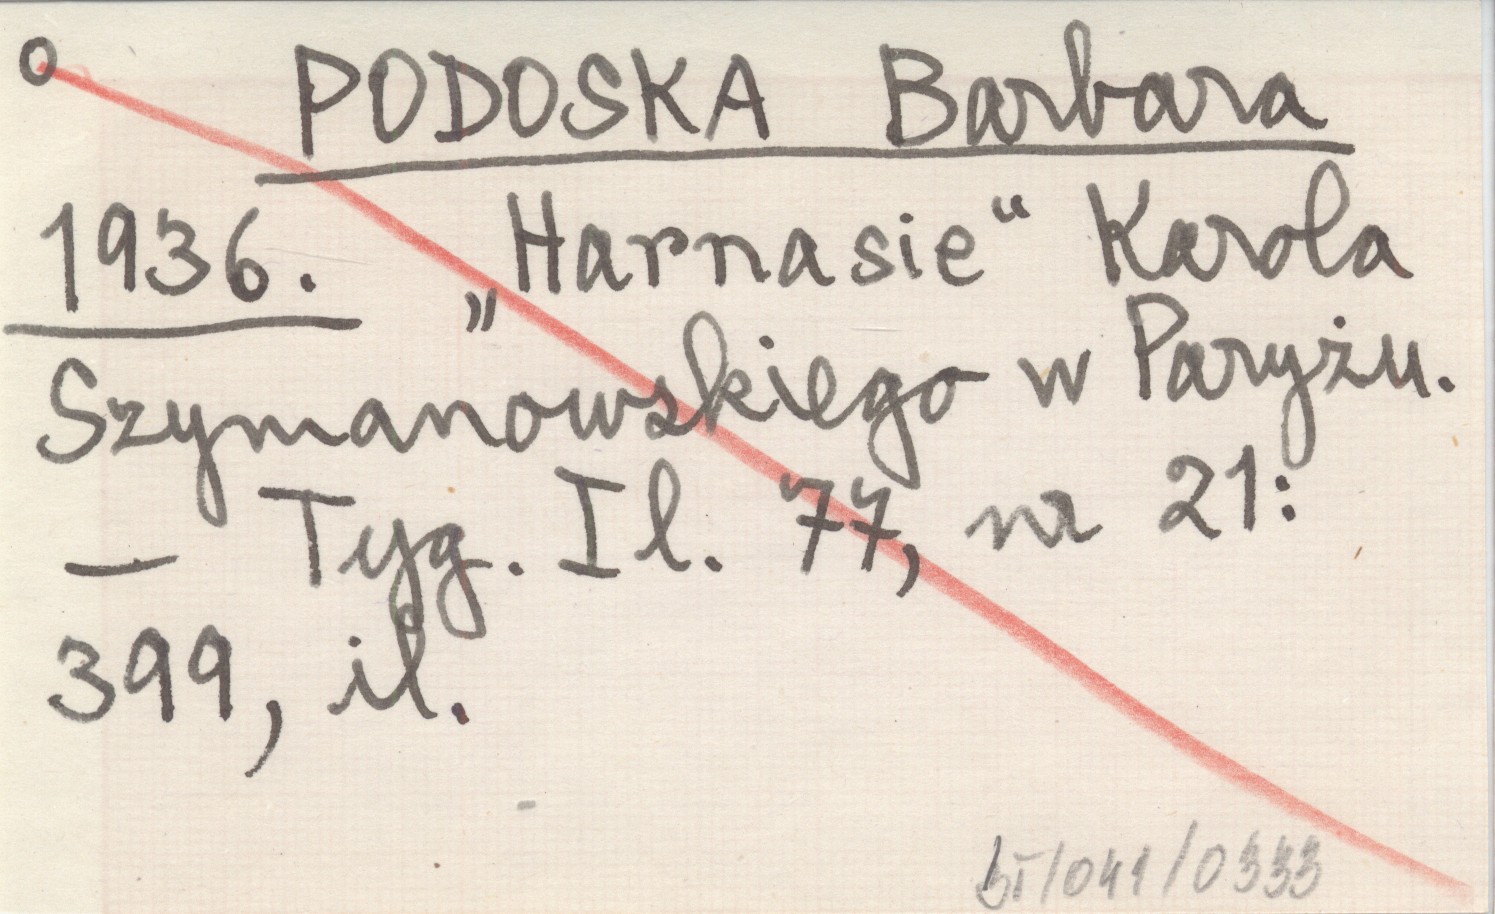 o PODOSKA Barbara
1936. „Harnasie“ Karola
Szymanowskiego w Paryżu.
— Tyg. Il. 77, nr 21:
399, il.
/041/0333